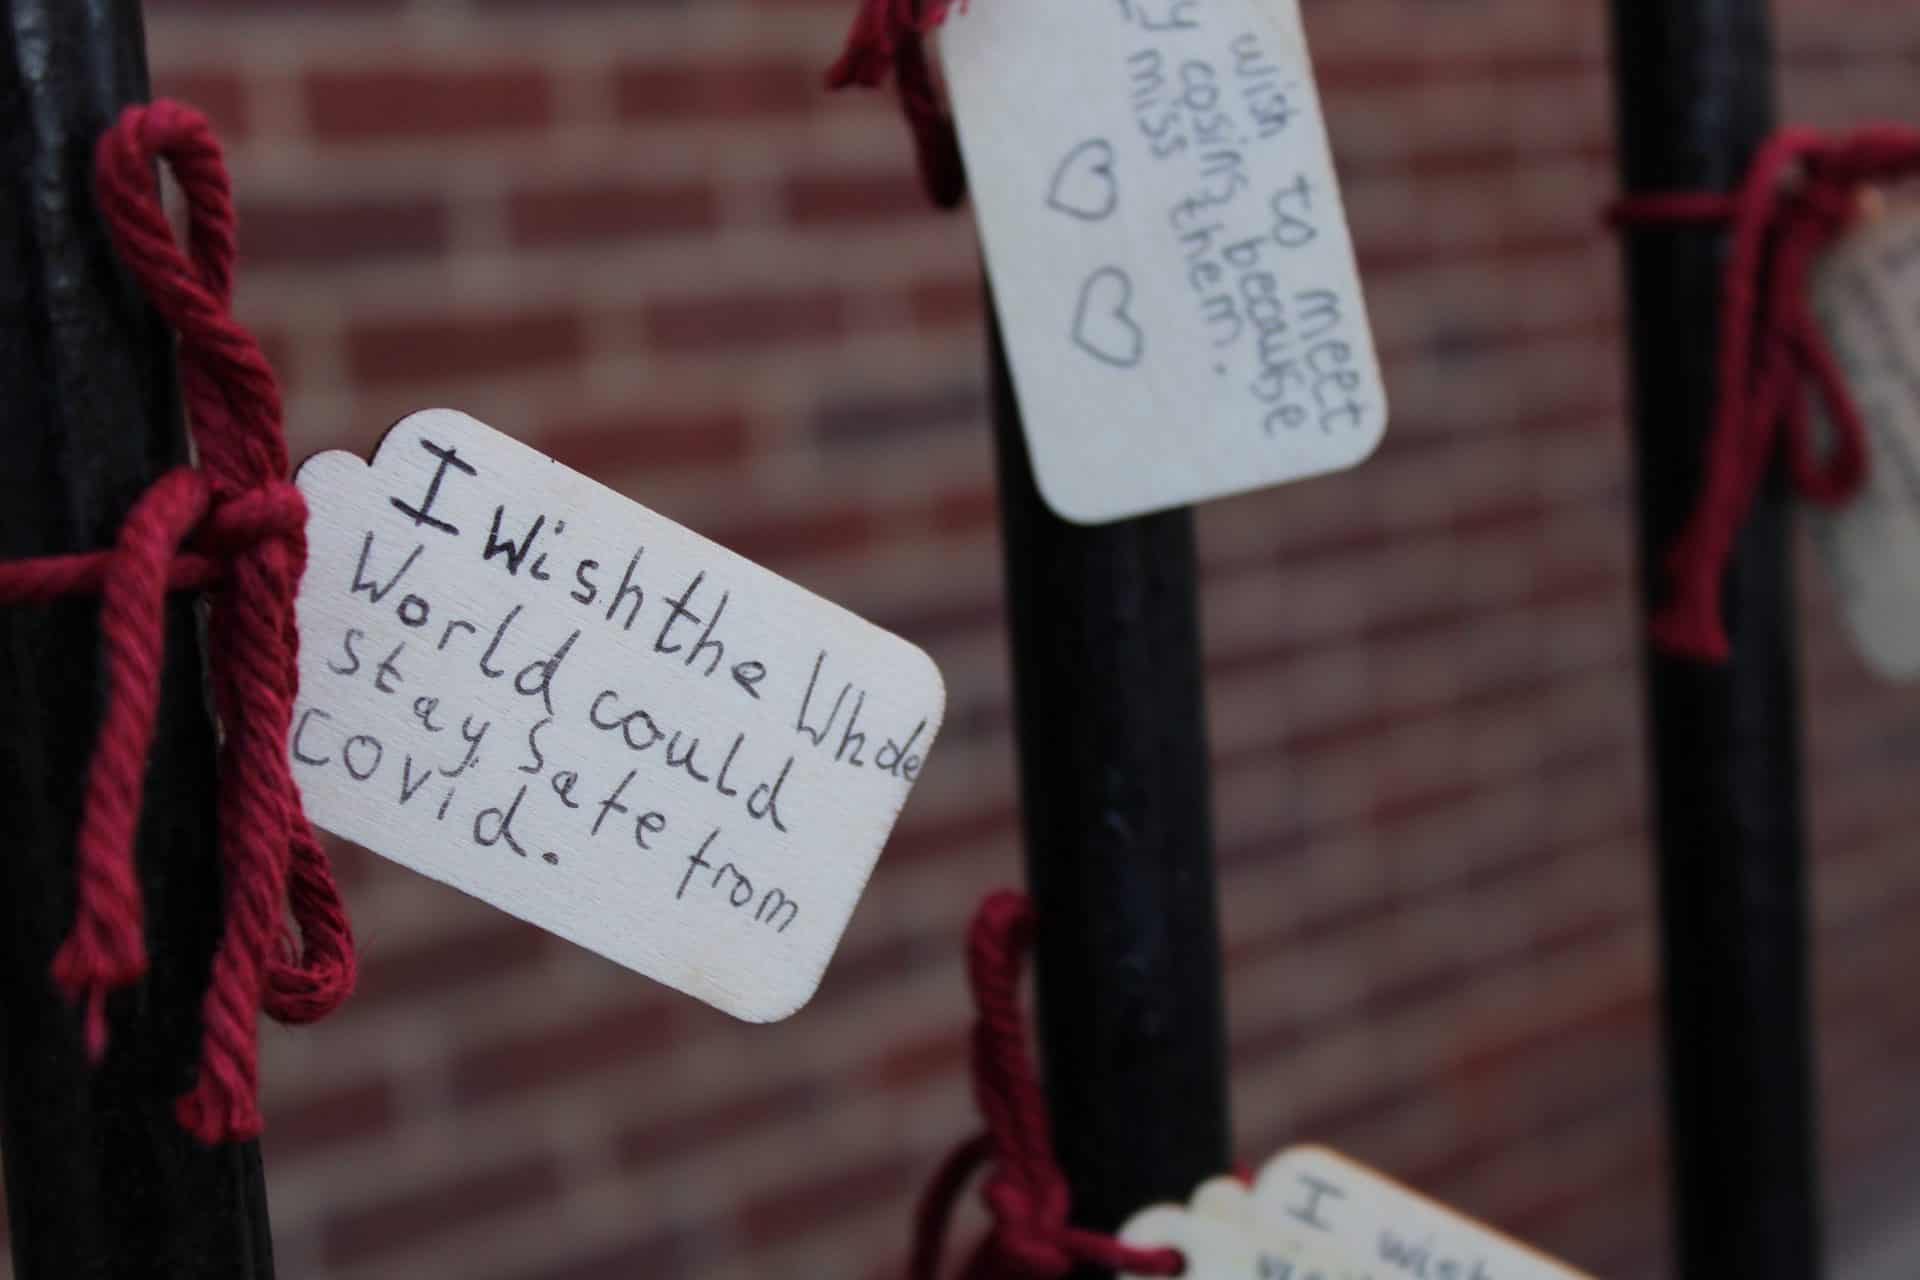 I wish the Whole
World could
stay safe from
Covid.
wish to meet
y cosins because
miss them.
I wish